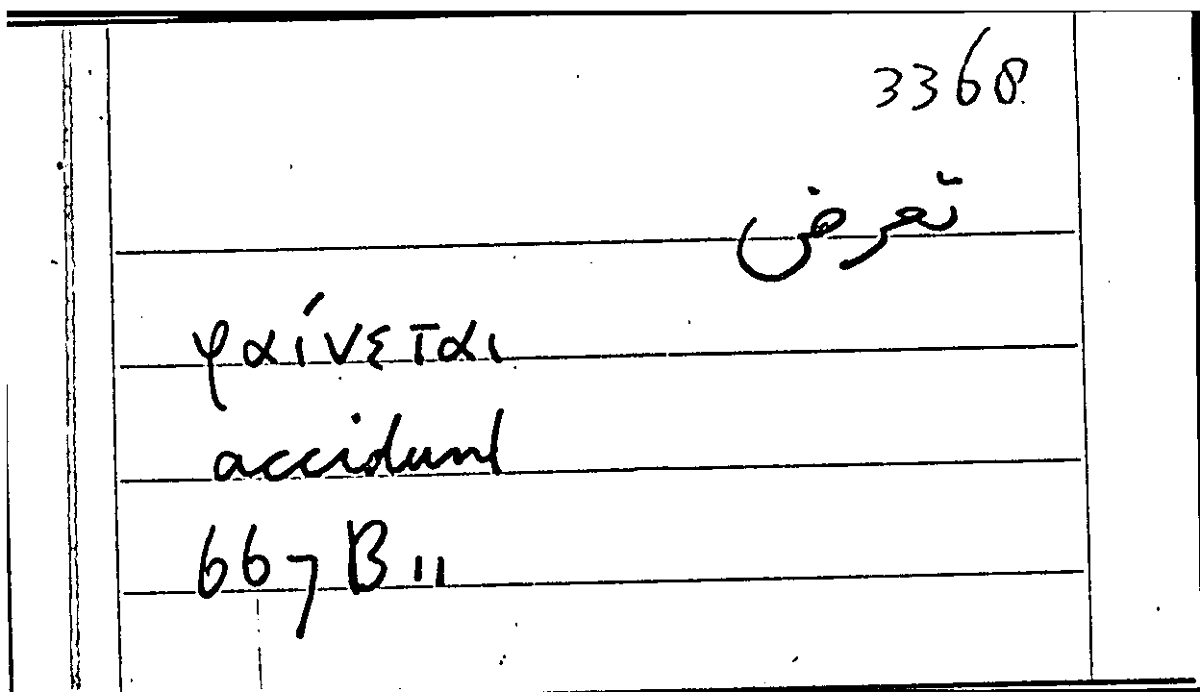 3368
تعرض
φαίνεται
accidunt
667 B 11